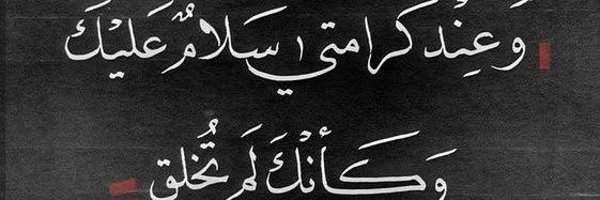 وَعِنْد كَرامتي سَلامٌ عَليْكَ
وَكَأنْكَ لَم تُخلق